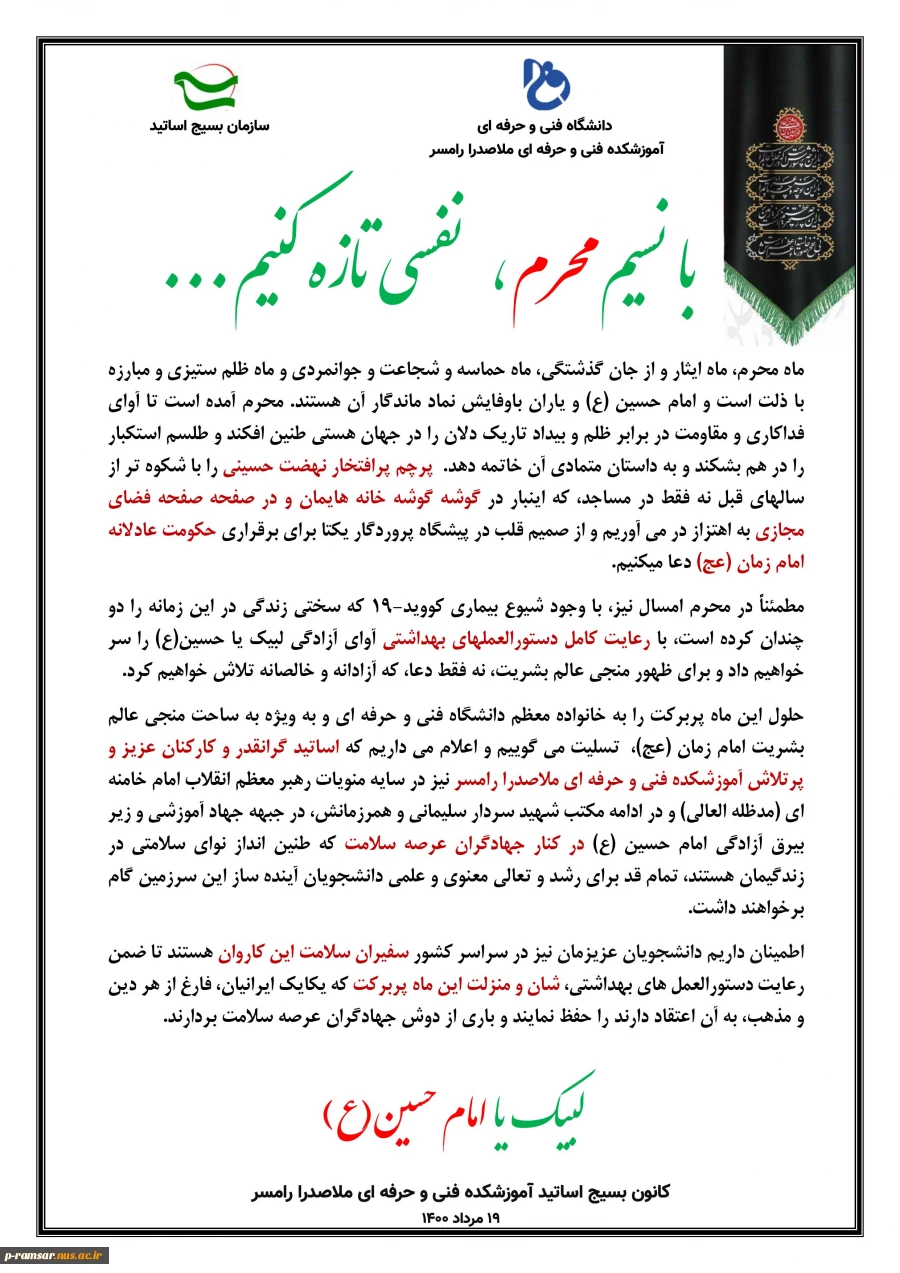 دانشگاه فنی و حرفه ای
آموزشکده فنی و حرفه ای ملاصدرا رامسر
سازمان بسیج اساتید
با نسیم محرم، نفسی تازه کنیم ...
ماه محرم، ماه ایثار و از جان گذشتگی، ماه حماسه و شجاعت و جوانمردی و ماه ظلم ستیزی و مبارزه
با ذلت است و امام حسین (ع) و یاران باوفایش نماد ماندگار آن هستند. محرم آمده است تا آوای
فداکاری و مقاومت در برابر ظلم و بیداد تاریک دلان را در جهان هستی طنین افکند و طلسم استکبار
را در هم بشکند و به داستان متمادی آن خاتمه دهد. پرچم پرافتخار نهضت حسینی را با شکوه تر از
سالهای قبل نه فقط در مساجد، که اینبار در گوشه گوشه خانه هایمان و در صفحه صفحه فضای
مجازی به اهتزاز در می آوریم و از صمیم قلب در پیشگاه پروردگار یکتا برای برقراری حکومت عادلانه
امام زمان (عج) دعا میکنیم.
مطمئناً در محرم امسال نیز، با وجود شیوع بیماری کووید-۱۹ که سختی زندگی در این زمانه را دو
چندان کرده است، با رعایت کامل دستورالعملهای بهداشتی آوای آزادگی لبیک یا حسین(ع) را سر
خواهیم داد و برای ظهور منجی عالم بشریت، نه فقط دعا، که آزادانه و خالصانه تلاش خواهیم کرد.
حلول این ماه پربرکت را به خانواده معظم دانشگاه فنی و حرفه ای و به ویژه به ساحت منجی عالم
بشریت امام زمان (عج)، تسلیت می گوییم و اعلام می داریم که اساتید گرانقدر و کارکنان عزیز و
پرتلاش آموزشکده فنی و حرفه ای ملاصدرا رامسر نیز در سایه منویات رهبر معظم انقلاب امام خامنه
ای (مدظله العالی) و در ادامه مکتب شهید سردار سلیمانی و همرزمانش، در جبهه جهاد آموزشی و زیر
بیرق آزادگی امام حسین (ع) در کنار جهادگران عرصه سلامت که طنین انداز نوای سلامتی در
زندگیمان هستند، تمام قد برای رشد و تعالی معنوی و علمی دانشجویان آینده ساز این سرزمین گام
برخواهند داشت.
اطمینان داریم دانشجویان عزیزمان نیز در سراسر کشور سفیران سلامت این کاروان هستند تا ضمن
رعایت دستورالعمل های بهداشتی، شان و منزلت این ماه پربرکت که یکایک ایرانیان، فارغ از هر دین
و مذهب، به آن اعتقاد دارند را حفظ نمایند و باری از دوش جهادگران عرصه سلامت بردارند.
لبیک یا امام حسین(ع)
کانون بسیج اساتید آموزشکده فنی و حرفه ای ملاصدرا رامسر
۱۹ مرداد ۱۴۰۰
p-ramsar.nus.ac.ir